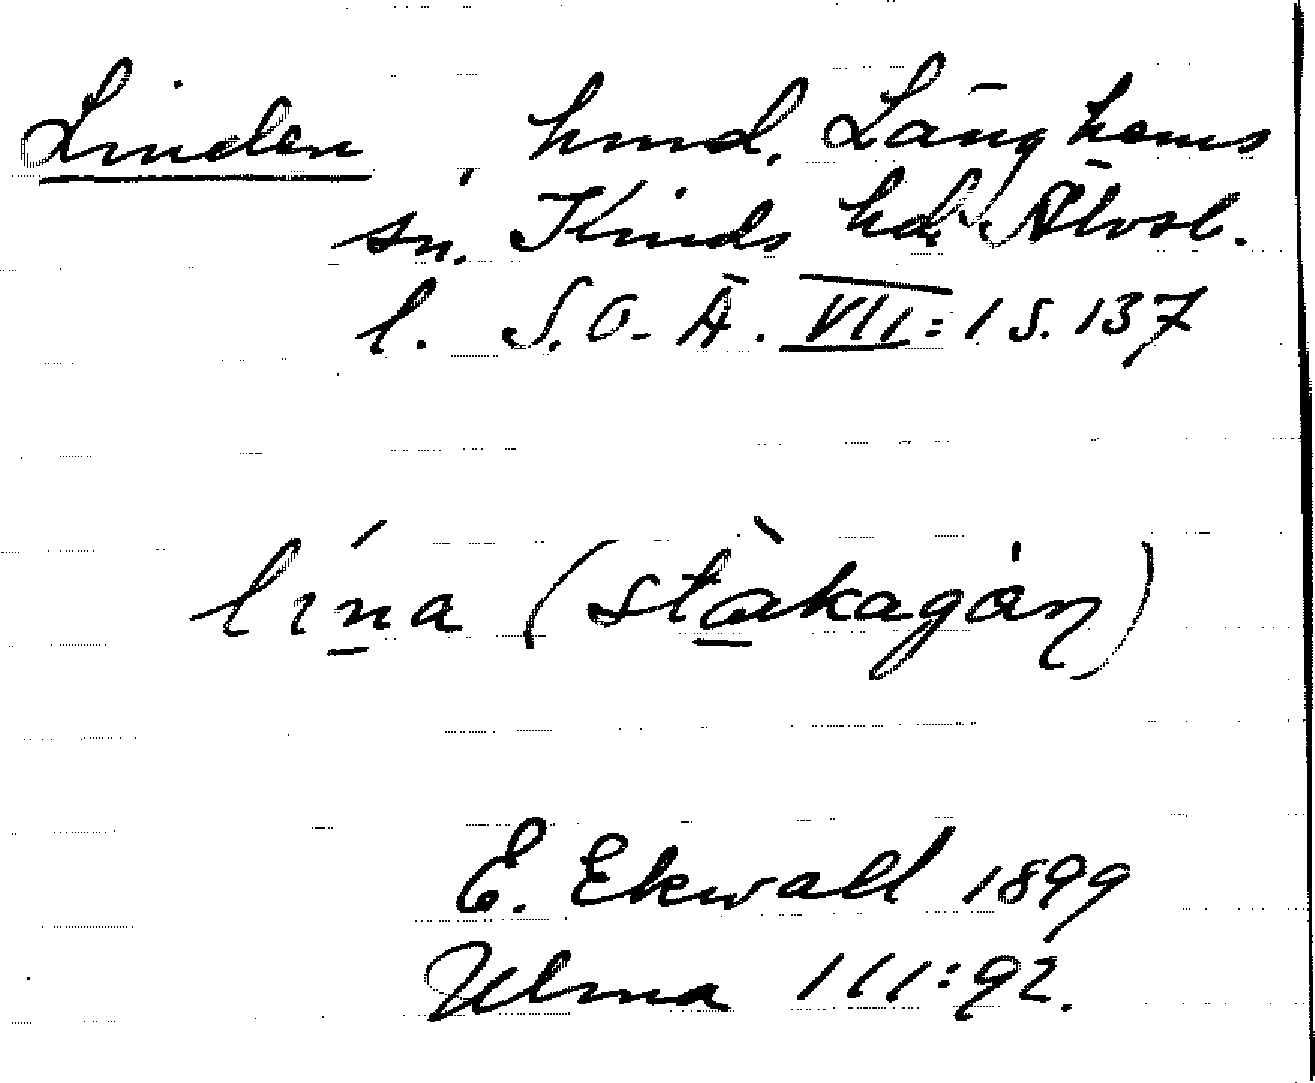 Linden, hmd. Länghems
sn. Kinds hd. Älvsb.
l. S.O.Ä. VII:1 s. 137
lína (stàkagȧn)
E. Ekwall 1899
Ulma 111:92.